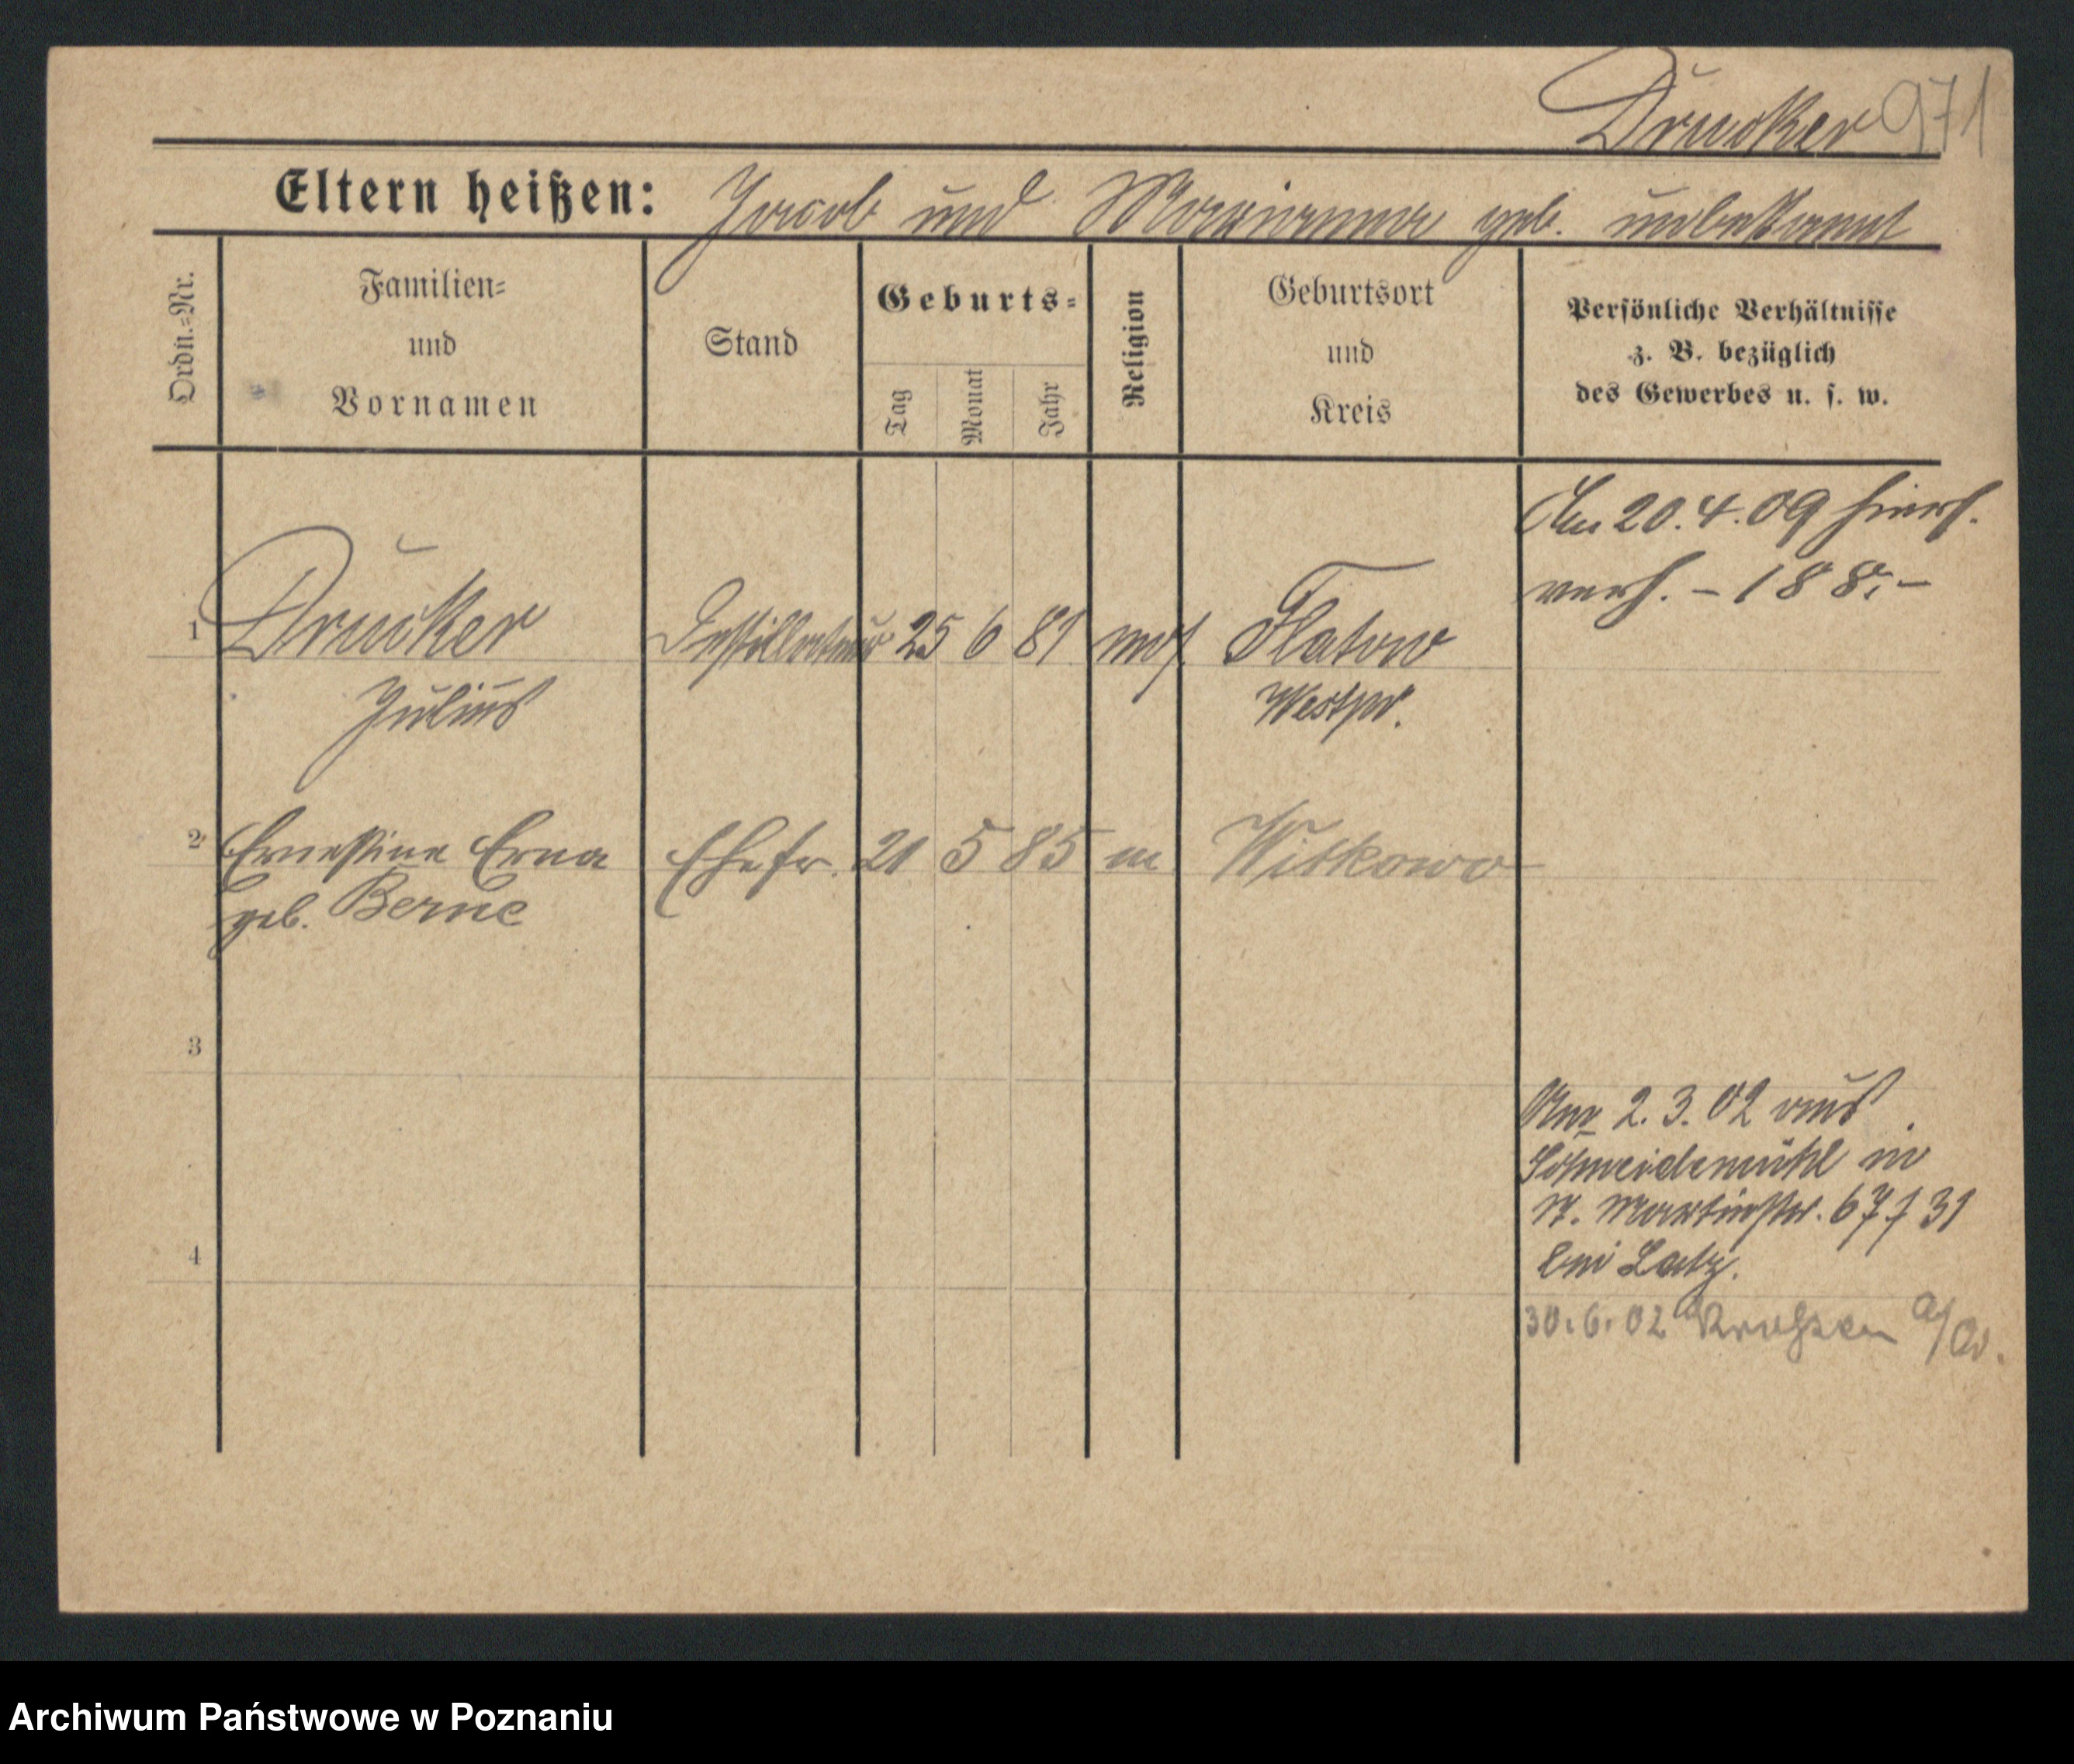 Drucker 971
Eltern heißen: Jacob und Marianna geb. unbekannt
Ordn.=Nr.
Familien=
und
Vornamen
Stand
Geburts=
Tag
Monat
Jahr
Religion
Geburtsort
und
Kreis
Persönliche Verhältnisse
z. B. bezüglich
des Gewerbes u. s. w.
Am 20.4.09 hiers.
verh. – 188.–
1 Drucker Destillateur 25 6 81 mos. Flatow
Julius Westpr.
2 Ernestine Erna Ehefr. 21 5 85 m Witkowo
geb. Berne
3
Am 2.3.02 aus
Schneidemühl in
St. Martinstr. 67 f 31
bei Latz.
4
30.6.02 a/Od.
Archiwum Państwowe w Poznaniu